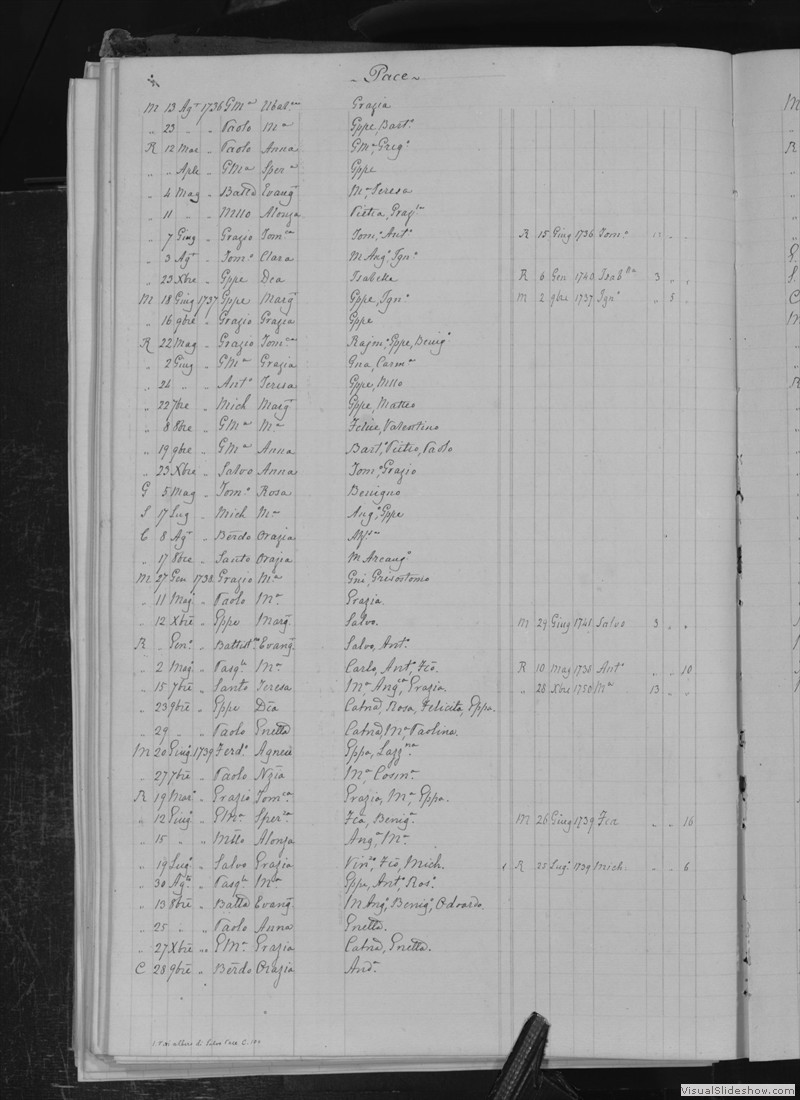 Pace
M 13 Agto 1736 GMa Ubalna Grazia
" 23 " " Paolo Ma Gppe, Barto
R 12 Mar " Paolo Anna GMa, Grego
" " Aple " GMa Spera Gppe
" 4 Mag " Batta Evanga Ma Teresa
" 11 " " Mllo Alonza Pietra, Grazla
" 7 Giug " Grazio Tomca Tomo, Anto R 15 Giug 1736 Tomo
" 3 Agto " Tomo Clara M Ango, Igno
" 23 Xbre " Gppe Dea Isabella R 6 Gen 1740 Isablla 3 " "
M 18 Giug 1737 Gppe Marga Gppe, Igno M 2 9bre 1737 Igno " 5 "
" 16 9bre " Grazio Grazia Gppe
R 22 Mag " Grazio Tomca Rajmo, Gppe, Benigo
" 2 Giug " GMa Grazia Gna, Carma
" 24 " " Anto Teresa Gppe, Mllo
" 22 7bre " Mich Marga Gppe, Matteo
" 8 8bre " GMa Ma Felice, Valentino
" 19 9bre " GMa Anna Barto, Pietro, Paolo
" 23 Xbre " Salvo Anna Tomo, Grazio
G 5 Mag " Tomo Rosa Benigno
S 17 Lug " Mich Ma Ango, Gppe
C 8 Agto " Berdo Orazia
" 17 8bre " Santo Orazia M Arcango
M 27 Gen 1738 Grazio Ma Gni, Grisostomo
" 11 Mag " Paolo Ma Grazia.
" 12 Xbre " Gppe Marga Salvo. M 29 Giug 1741 Salvo 3 " "
R " Geno " Battista Evanga Salvo, Anto
" 2 Mag " Pasqle Ma Carlo, Anto, Fco. R 10 Mag 1738 Anto " " 10
" 15 7bre " Santo Teresa Ma, Angca, Grazia " 28 Xbre 1750 Ma 13 " "
" 23 9bre " Gppe Dea Catna, Rosa, Felicita, Gppa.
" 29 " " Paolo Gnetta Catna, Ma, Paolina.
M 20 Giug 1739 Ferdo Agnese Gppa, Lazzra
" 27 7bre " Paolo Nzia Ma, Cosma
R 19 Mar " Grazio Tomca Grazia, Ma, Gppa.
" 12 Giug " GMa Sperza Fca, Beniga M 26 Giug 1739 Fca " " 16
" 15 " " Mllo Alonza Anga, Ma
" 19 Lug " Salvo Grazia Vinzo, Fco, Mich. 1 R 25 Lug 1739 Mich. " " 6
" 30 Agto " Pasqle Ma Gppe, Anto, Roso
" 13 8bre " Batta Evanga M Ango, Benigo, Odoardo.
" 25 " " Paolo Anna Gnetta.
" 27 Xbre " GMa Grazia Catna, Gnetta.
C 28 9bre " Berdo Orazia Anda